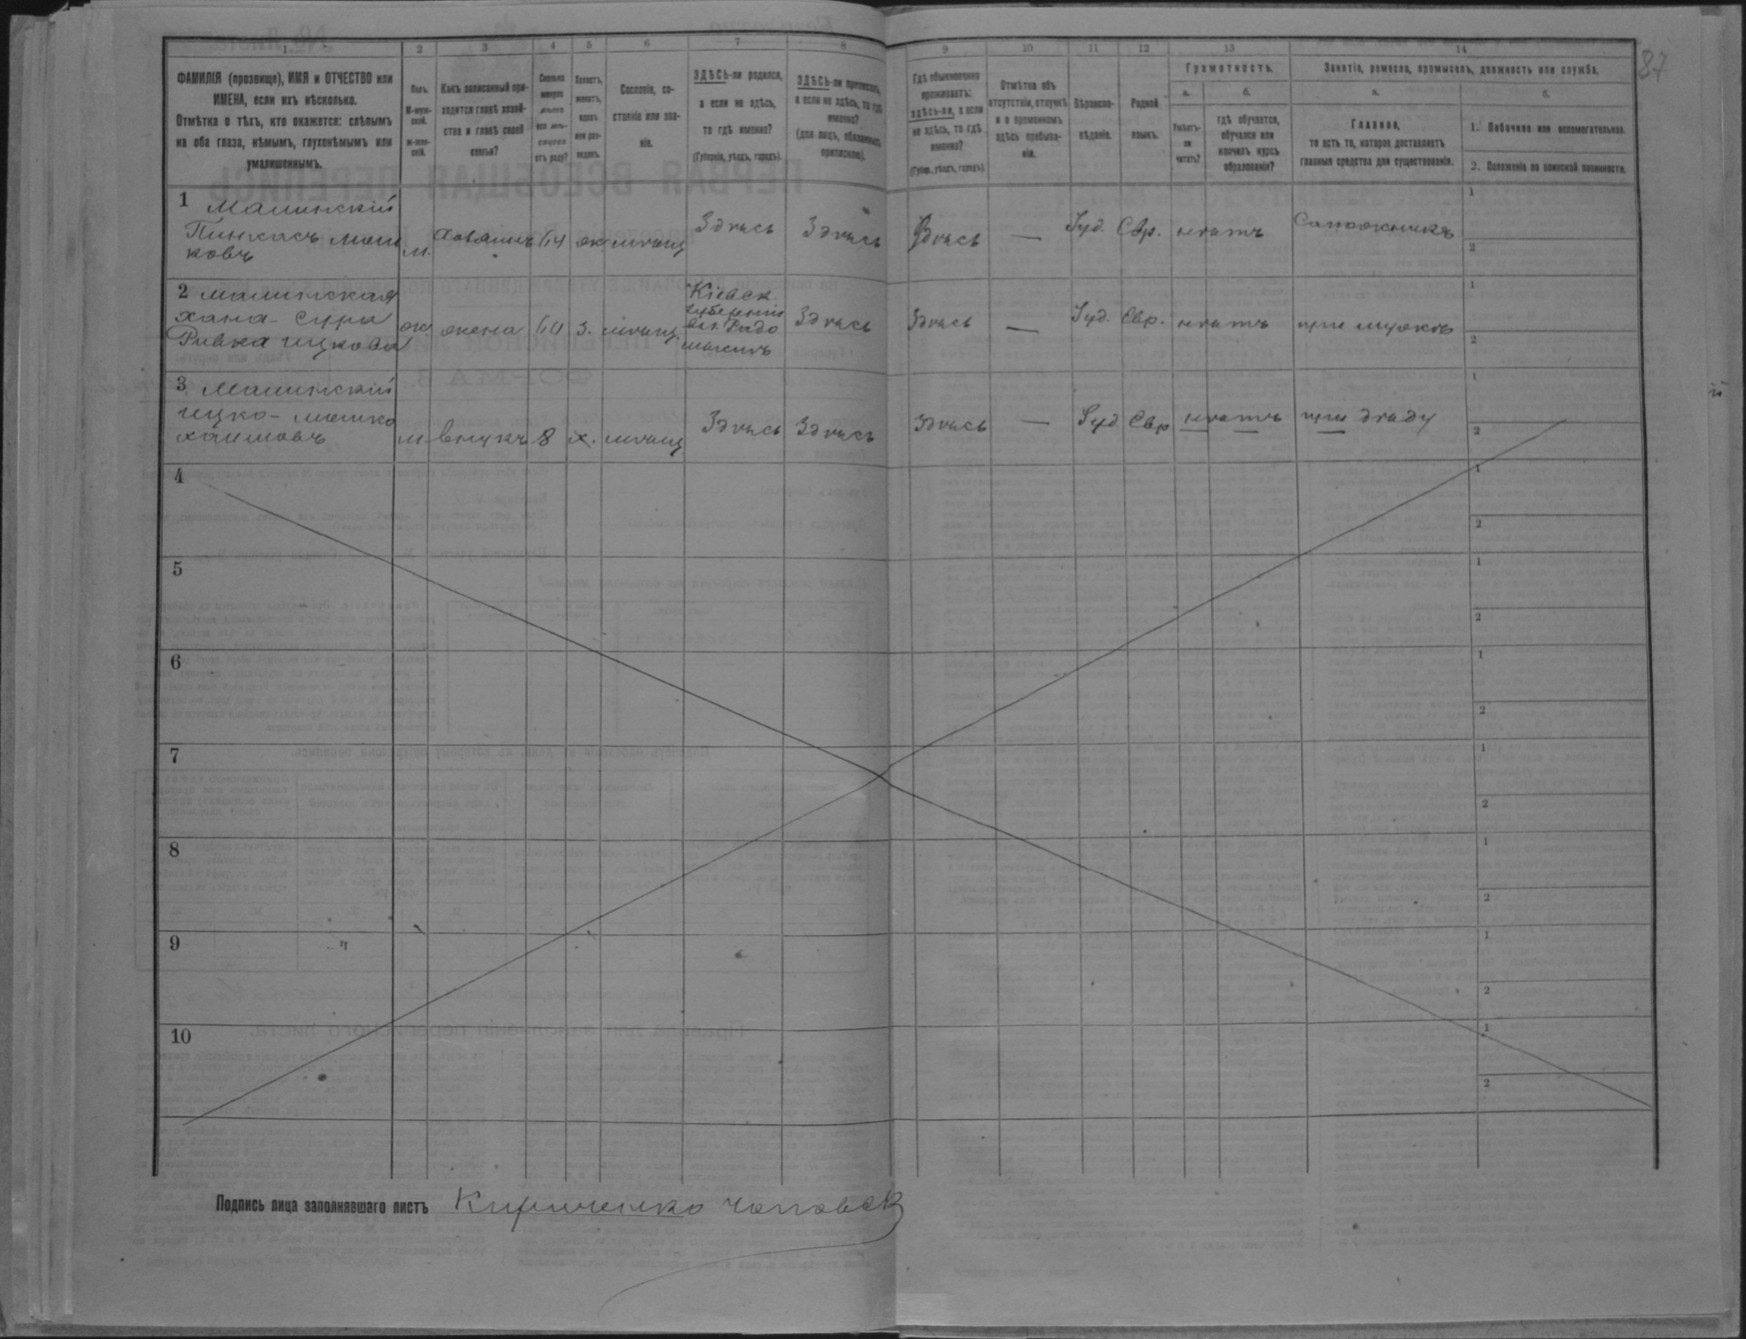 87
1 2 3 4 5 6 7 8 9 10 11 12 13 14
ФАМИЛІЯ (прозвище), ИМЯ и ОТЧЕСТВО или
ИМЕНА, если ихъ нѣсколько.
Отмѣтка о тѣхъ, кто окажется: слѣпымъ
на оба глаза, нѣмымъ, глухонѣмымъ или
умалишеннымъ.
Полъ.
М-муж-
ской.
Ж-жен-
скій.
Какъ записанный при-
ходится главѣ хозяй-
ства и главѣ своей
семьи?
Сколько
минуло
лѣтъ
или мѣ-
сяцевъ
отъ роду?
Холостъ,
женатъ,
вдовъ
или раз-
веденъ.
Сословіе, со-
стояніе или зва-
ніе.
ЗДѢСЬ-ли родился,
а если не здѣсь,
то гдѣ именно?
(Губернія, уѣздъ, городъ).
ЗДѢСЬ-ли приписанъ,
а если не здѣсь, то гдѣ
именно?
(для лицъ, обязанныхъ
припискою).
Гдѣ обыкновенно
проживаетъ:
здѣсь-ли, а если
не здѣсь, то гдѣ
именно?
(Губер., уѣздъ, городъ).
Отмѣтка объ
отсутствіи, отлучкѣ
и о временномъ
здѣсь пребыва-
ніи.
Вѣроиспо-
вѣданіе.
Родной
языкъ.
Грамотность.
а. б.
Умѣетъ-
ли
читать?
гдѣ обучается,
обучался или
кончилъ курсъ
образованія?
Занятіе, ремесло, промыселъ, должность или служба.
а. б.
Главное,
то есть то, которое доставляетъ
главныя средства для существованія.
1. Побочное или вспомогательное.
2. Положеніе по воинской повинности.
1 Малинскій
Пинхасъ Мош
ковъ
м. 64 мѣщ Здѣсь Здѣсь Здѣсь — Іуд. Евр. нѣтъ Сапожникъ
1
2
2 Малинская
Хана - Сура
Ривка Ицкова
ж жена 64 з. мѣщ.
Кіевск.
губерніи
Радо
мысль
Здѣсь Здѣсь — Іуд. Евр. нѣтъ при мужѣ
1
2
3 Малинскій
Ицко - Мошко
Хаимовъ
м внукъ 8 х. мѣщ Здѣсь Здѣсь Здѣсь — Іуд. Евр нѣтъ при дѣду
1
2
4
1
2
5
1
2
6
1
2
7
1
2
8
1
2
9
1
2
10
1
2
Подпись лица заполнявшаго листъ Кириченко